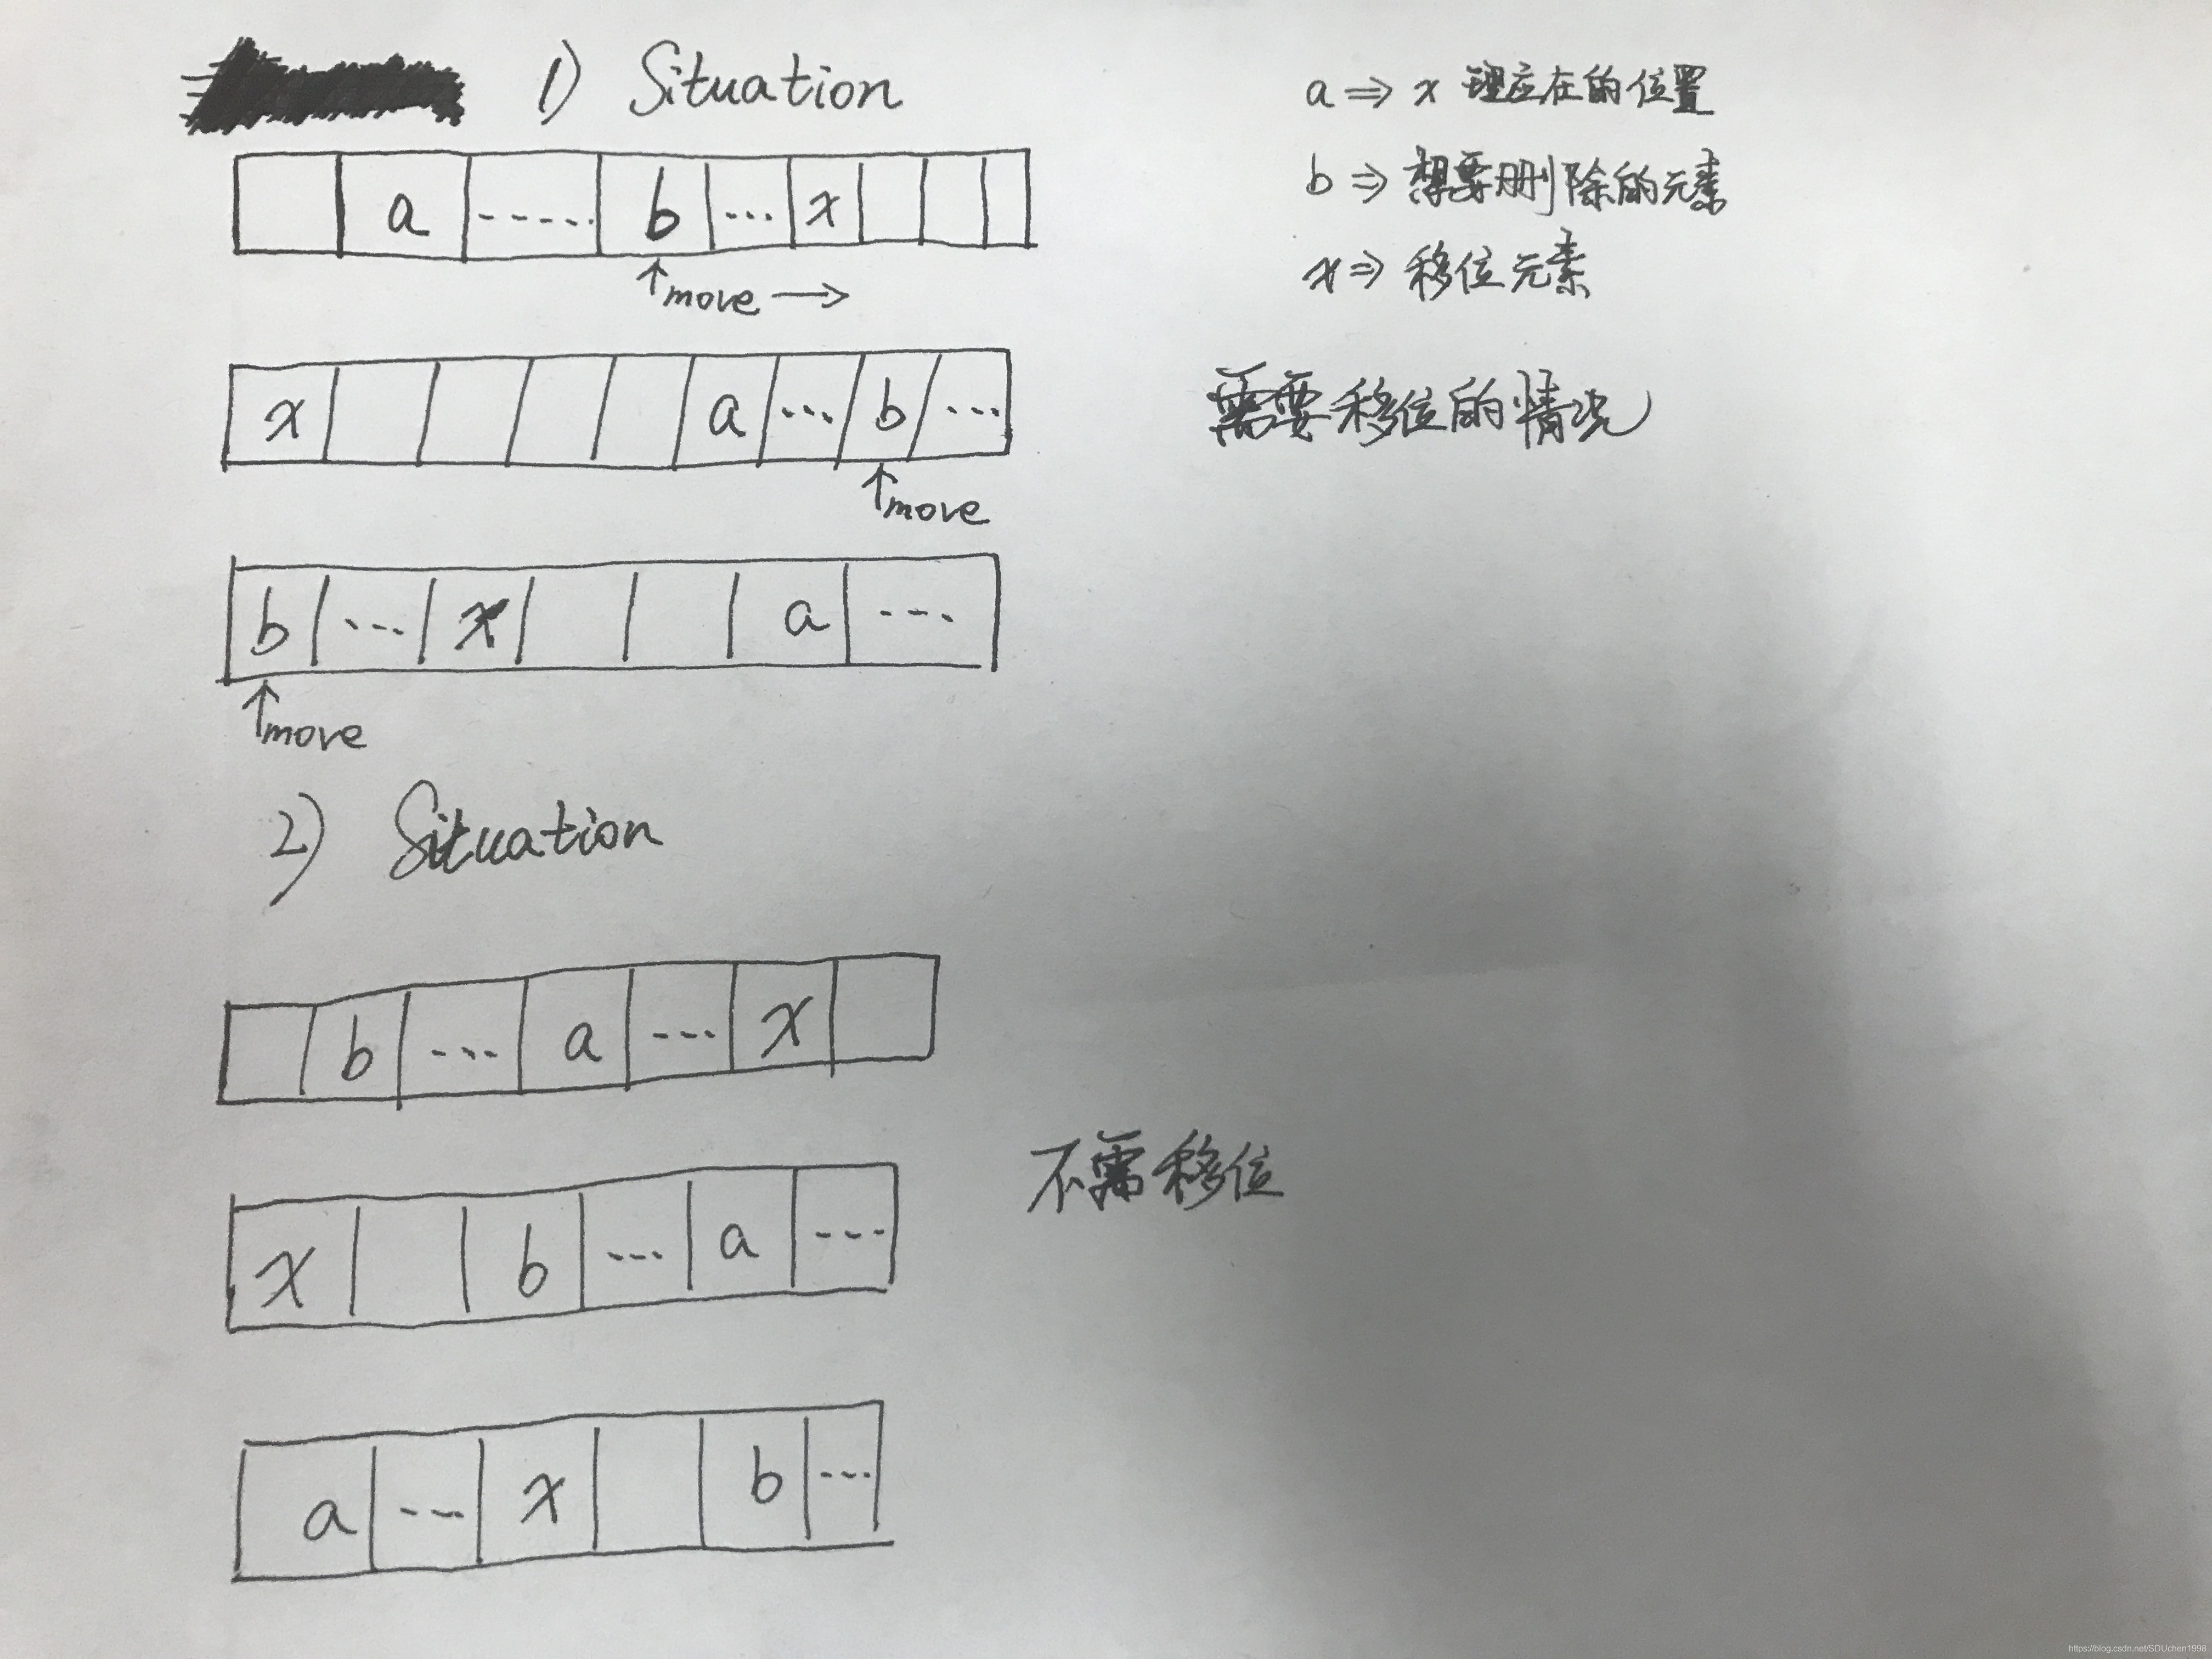 1) Situation
a ⇒ x 理应在的位置
b ⇒ 想要删除的元素
x ⇒ 移位元素
a ----- b ... x
↑move →
x a ... b ...
↑move
需要移位的情况
b ... x a ...
↑move
2) Situation
b ... a ... x
不需移位
x b ... a ...
a ... x b ...
https://blog.csdn.net/SDUchen1998